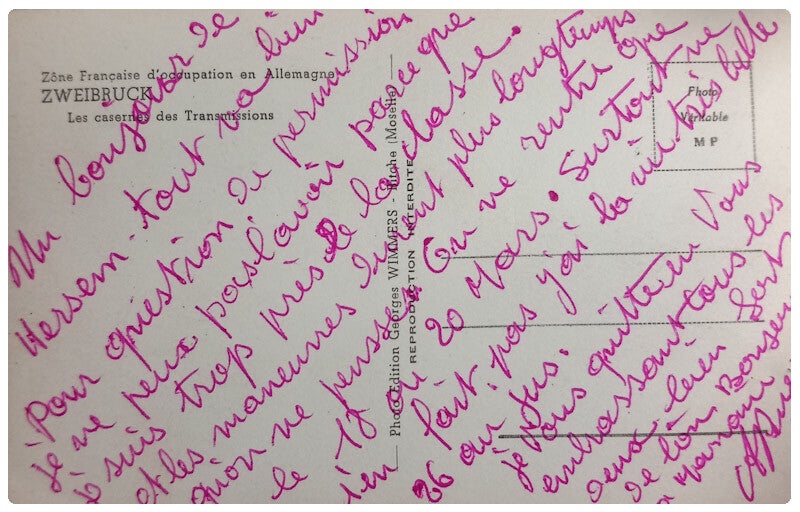 Zône Française d'occupation en Allemagne
ZWEIBRUCK
Les casernes des Transmissions
Photo Edition Georges WIMMERS - Bitche (Moselle)
REPRODUCTION INTERDITE
Photo
Véritable
M P
Un bonjour de
Hersem. tout va bien
Pour question de permission
je ne peux pas l'avoir parce que
je suis trop près de la classe.
et les manœuvres durent plus longtemps
qu'on ne pensse. On ne rentre que
le 17 ou 20 Mars. Surtout ne
en fait pas j'ai la vie très belle
26 au jus.
je vous quitte en vous
embrassant tous les
deux bien fort
de bons
a maman